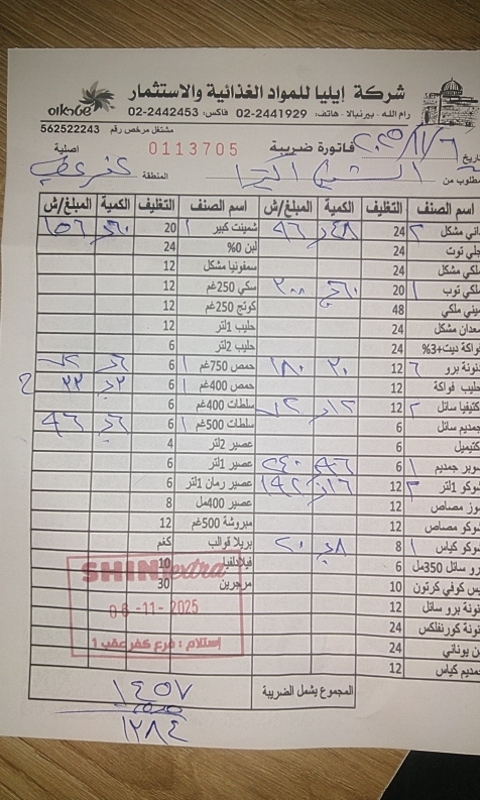 شركة إيليا للمواد الغذائية والاستثمار
رام الله - بيرنبالا - هاتف: 02-2441929 فاكس: 02-2442453
مشتغل مرخص رقم 562522243
فاتورة ضريبية 0113705 اصلية
٢٠٢٥/١١/٦
المنطقة كفر عقب
اسم الصنف التغليف الكمية المبلغ/ش اسم الصنف التغليف الكمية المبلغ/ش
داني مشكل ٢ 24 ٤٨ ٩٦ شمينت كبير ١ 20 ١٥٦
جلي توت 24 لبن 0% 24
ملكي مشكل 24 سمفونيا مشكل 12
ملكي توب ١ 20 ٦٠ ٢٠٠ سكي 250غم 12
ميني ملكي 48 كوتج 250غم 12
معدان مشكل 24 حليب 1لتر 12
فواكة ديت+3% 24 حليب 2لتر 6
نونة برو ٦ 12 ٣٠ ١٨٠ حمص 750غم ١ 6 ٦
حليب فواكة 12 حمص 400غم ١ 6 ٣٣
اكتيفيا سائل ٢ 12 ١٢ سلطات 400غم 6
جمديم سائل 6 سلطات 500غم ١ 6 ٦ ٤٦
اكتيميل 6 عصير 2لتر 4
سوبر جمديم ١ 6 ٢٤٠ عصير 1لتر 6
شوكو 1لتر ٣ 12 ١٦ ١٩٢ عصير رمان 1لتر 6
موز مصاص 12 عصير 400مل 8
شوكو مصاص 12 مبروشة 500غم 12
شوكو كياس ١ 8 ٨ ٢٠ بريلا قوالب كغم
برو سائل 350مل 6 فيلادلفيا 10
ايس كوفي كرتون 10 مرجرين 30
نونة برو سائل 12
نونة كورنفلكس 24
لبن يوناني 24
جمديم كياس 12
SHINI extra
06-11-2025
إستلام : فرع كفر عقب 1
المجموع يشمل الضريبة
١٤٥٧
١٢٨٤